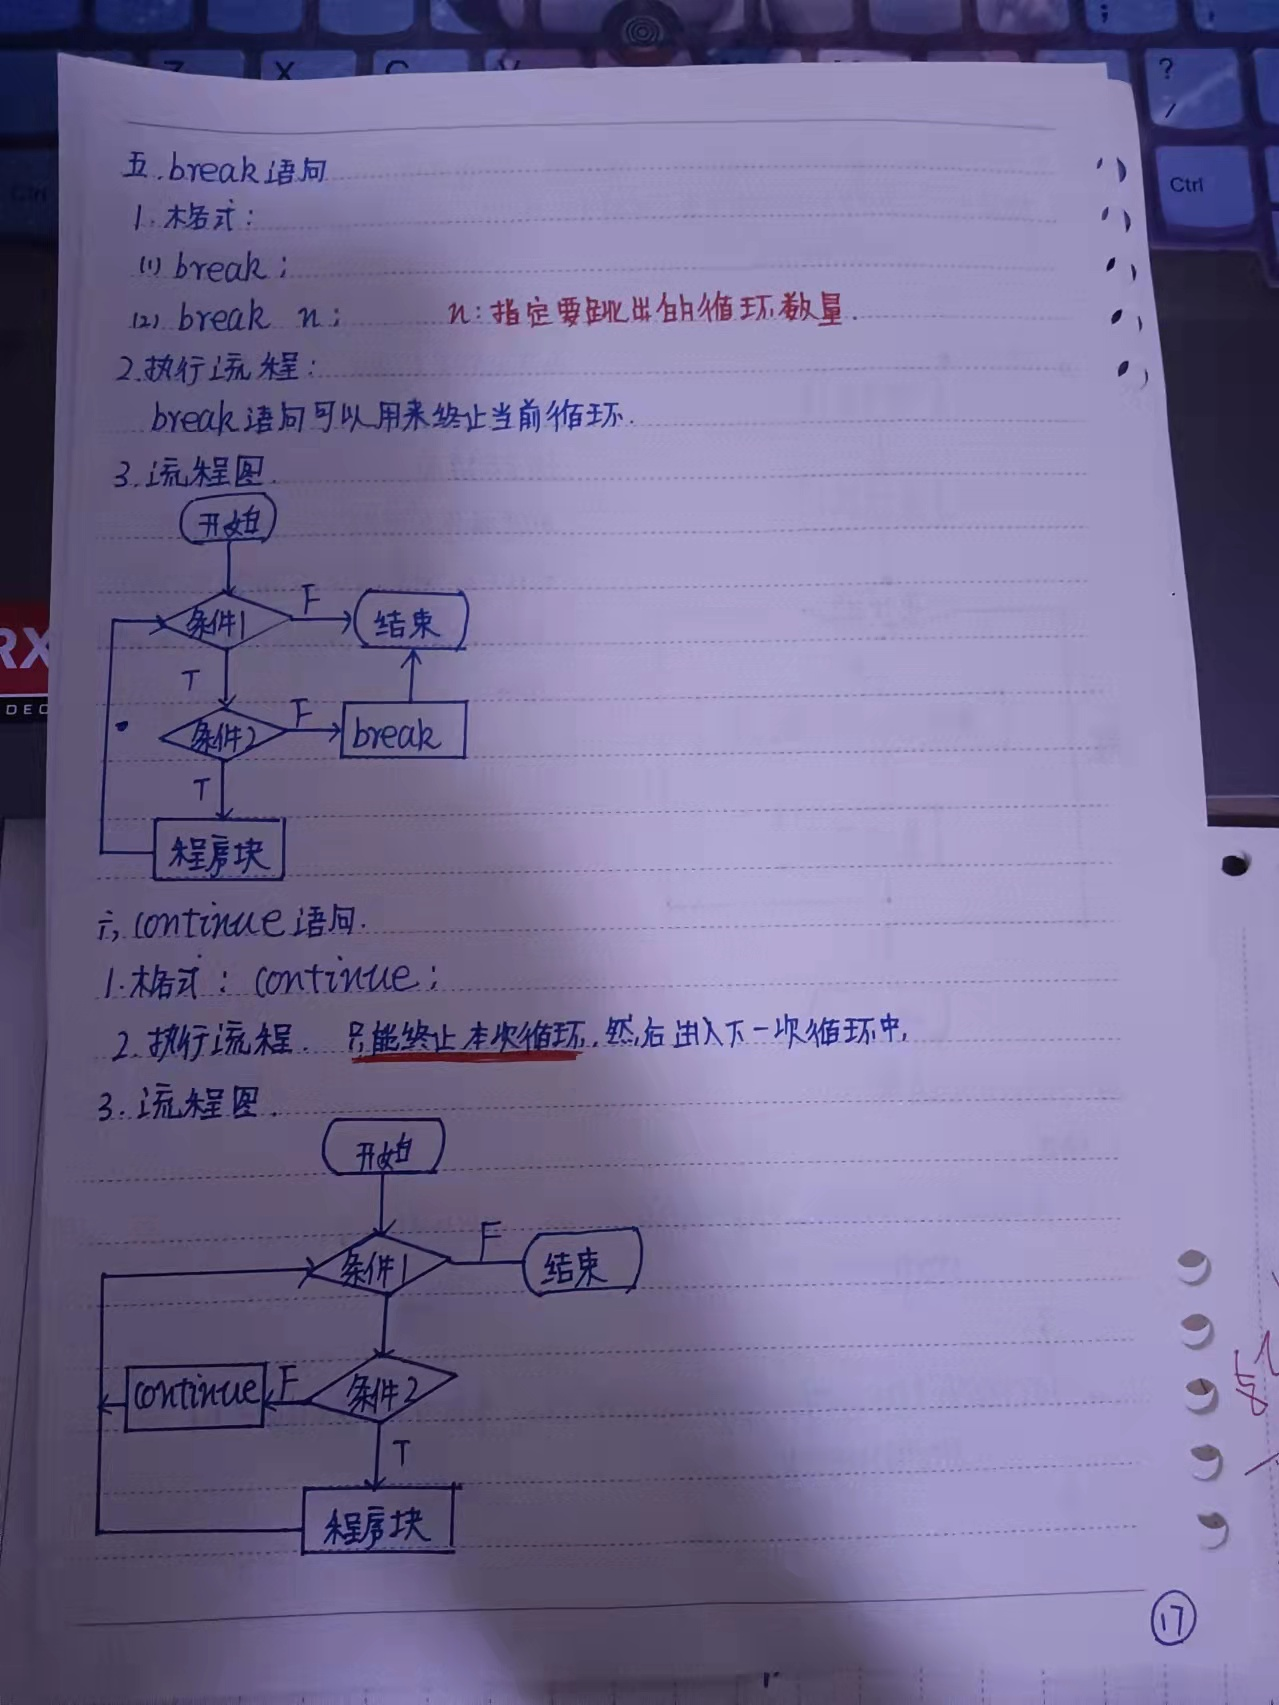 Z X C V
? /
;
Ctrl
Ctrl
五.break语句
1.格式:
(1) break;
(2) break n; n:指定要跳出的循环数量.
2.执行流程:
break语句可以用来终止当前循环.
3.流程图.
开始
条件1 F 结束
T
条件2 F break
T
程序块
RX
DEC
六,continue语句.
1.格式: continue;
2.执行流程. 只能终止本次循环,然后进入下一次循环中,
3.流程图.
开始
条件1 F 结束
continue F 条件2
T
程序块
17